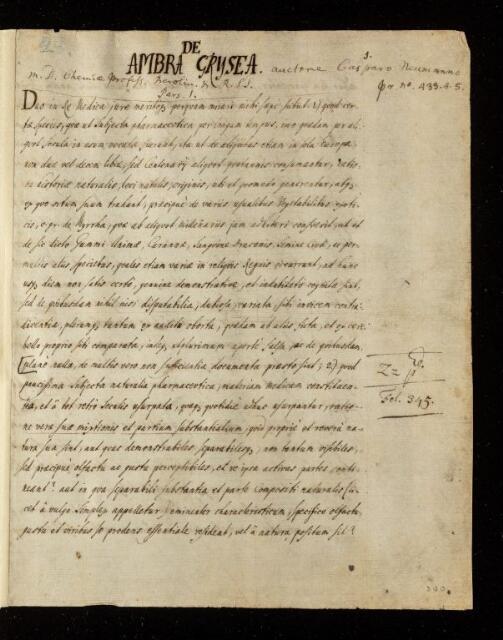 1.
DE
AMBRA GRYSEA. auctore Casparo Neumanno
M. D. Chemiæ Profess. Berolin. & R. S. S.
Pars. 1.
Pr no. 433.4.5.
Duo in Re Medica jure merito, perquam mira mihi, sæpe
ut subjecta pharmaceutica per longum tempus, imo quædam per ali-
quot Secula in usum vocata fuerunt, ita ut de aliquibus etiam in sola Europa,
non duæ vel decem libræ, sed Centenarij aliquot quotannis consumantur, ratio-
ne historiæ naturalis, loci natalis, originis, ubi et quomodo generentur,
ex quo ortum suum trahant, præcipuè de variis usualibus Vegetabilibus exoti-
cis, e. gr. de Myrrha, quæ ab aliquot
de sic dicto Gummi Animæ, Carannæ, Sanguine Draconis, Semine Cinæ, et per-
multis aliis speciebus, qualis etiam variæ in reliquis Regnis occurrant, ad hunc
usque diem non satis certe, genuina demonstrativa, et indubitate cognita sint,
sed de quibusdam nihil nisi disputabilia, dubiosa, variata sibi invicem contra-
dicentia, plerumque tantum ex auditu oborta, quædam ab aliis ficta, et ex cere-
bello proprio sibi comparata, aperte falsa, ac de quibusdam
plane nulla, de multis vero non sufficientia documenta præsto sint; 2.) quod
paucissima Subjecta naturalia pharmaceutica, materiam medicam constituen-
tia, et à tot retro Seculis usurpata, quæque quotidie adhuc usurpantur, ratio-
ne veræ suæ mixtionis et partium substantialium, quis propriè et reverà na-
tura sua sint, aut quas demonstrabiles separabilesque, non tantum visibiles,
sed præcipuè olfactu ac gustu perceptibiles, et re ipsa activas partes, conti-
neant? aut in qua separabili substantia et parte Compositi naturalis (li-
cet à vulgo simplex appelletur) eminenter characteristicum, specifico olfactu,
gustu et viribus se prodens essentiale resideat, vel à natura positum sit?
Fol. 345.